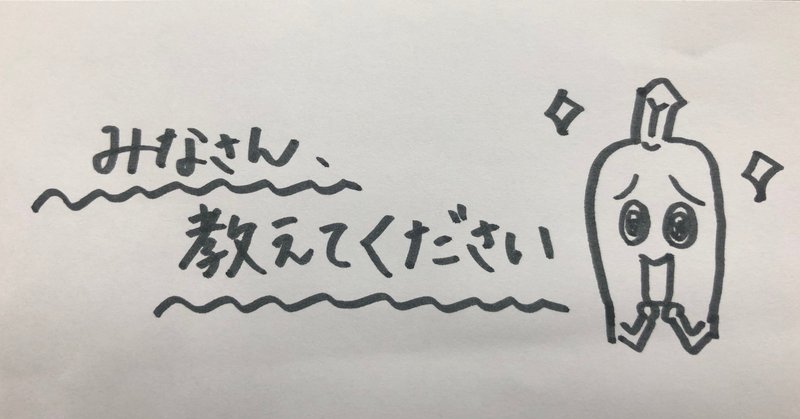 みなさん、
教えてください